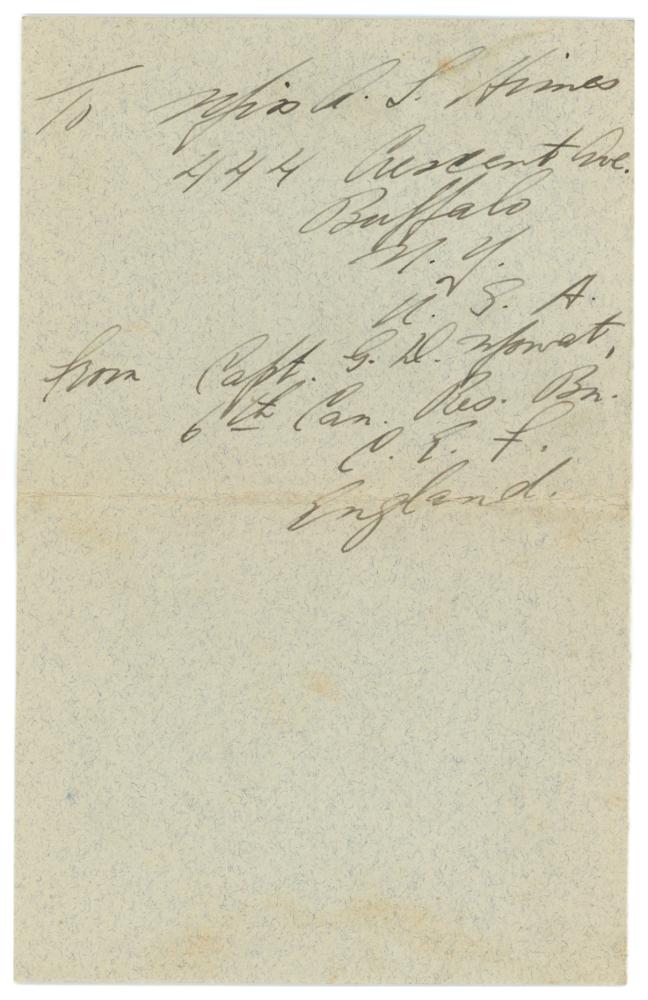 To Miss A. L. Himes
444 Crescent Ave.
Buffalo
N. Y.
U. S. A.
from Capt. G. D. Mowat,
6th Can. Res. Bn.
C. E. F.
England.